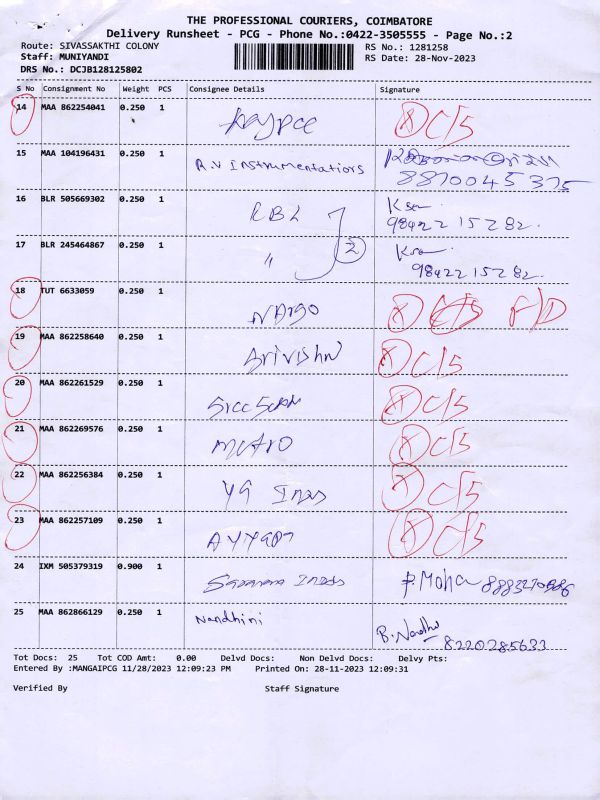 THE PROFESSIONAL COURIERS, COIMBATORE
Delivery Runsheet - PCG - Phone No.:0422-3505555 - Page No.:2
Route: SIVASSAKTHI COLONY RS No.: 1281258
Staff: MUNIYANDI RS Date: 28-Nov-2023
DRS No.: DCJB128125802
S No Consignment No Weight PCS Consignee Details Signature
14 MAA 862254041 0.250 1 C/5
15 MAA 104196431 0.250 1 R.V Instrumentations
8870045375
16 BLR 505669302 0.250 1 RBL
98422 15282.
17 BLR 245464867 0.250 1 " 2
98422 15282.
18 TUT 6633059 0.250 1 C/5 F/D
19 MAA 862258640 0.250 1 Srivishnu C/5
20 MAA 862261529 0.250 1 C/5
21 MAA 862269576 0.250 1 Metro C/5
22 MAA 862256384 0.250 1 C/5
23 MAA 862257109 0.250 1 C/5
24 IXM 505379319 0.900 1 P. Moha
25 MAA 862866129 0.250 1 Nandhini B. Nandhi
8220285633
Tot Docs: 25 Tot COD Amt: 0.00 Delvd Docs: Non Delvd Docs: Delvy Pts:
Entered By :MANGAIPCG 11/28/2023 12:09:23 PM Printed On: 28-11-2023 12:09:31
Verified By Staff Signature